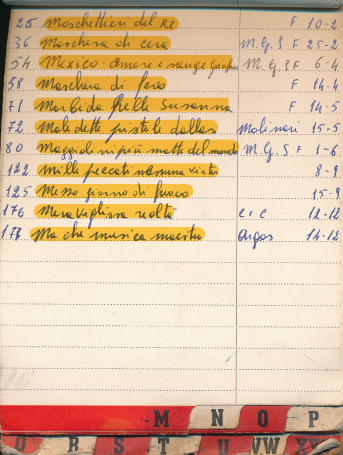 25 Moschettieri del Re F 10-2
36 Maschera di cera M.G.S F 25-2
54 Mexico amore e sangue M.G.S F 6-4
58 Maschera di fero F 14-4
71 Morbida pelle Susanna F 14-5
72 Maledette pistole dallas Molinari 15-5
80 Maggiolini più matto del mondo M.G.S F 1-6
122 Mille peccati nessuna virtù 8-9
125 Mezzo giorno di fuoco 15-9
176 Meravigliosa realtà cic 12-12
177 Ma che musica maestro Argos 14-12
M N O P
Q R S T U VW XY